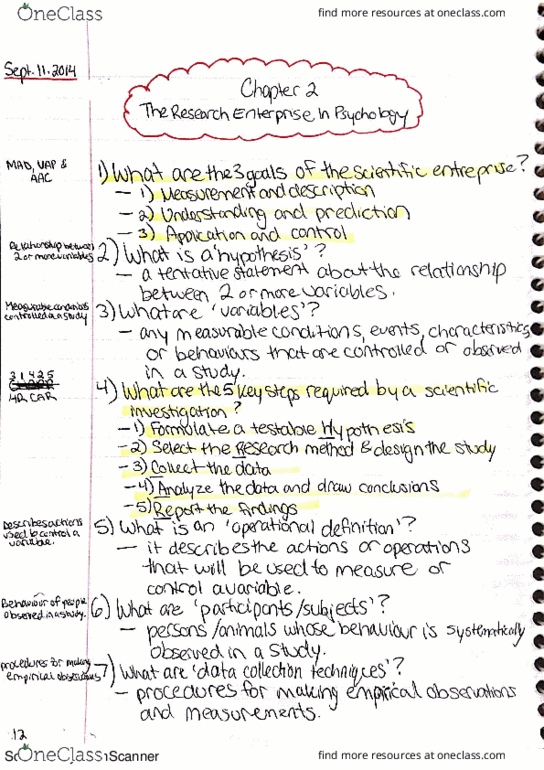 OneClass
find more resources at oneclass.com
Sept. 11. 2014
Chapter 2
The Research Enterprise In Psychology
MAD, UAP &
AAC
1) What are the 3 goals of the scientific entreprise?
- 1) Measurement and description
- 2) Understanding and prediction
- 3) Application and control
Relationship between
2 or more variables
2) What is a 'hypothesis'?
- a tentative statement about the relationship
between 2 or more variables.
Measurable conditions
controlled in a study
3) What are 'variables'?
- any measurable conditions, events, characteristics
or behaviours that are controlled or observed
in a study.
3 1 4 2 5
HR CAR
4) What are the 5 key steps required by a scientific
investigation?
- 1) Formulate a testable Hypothesis
- 2) Select the Research method & design the study
- 3) Collect the data
- 4) Analyze the data and draw conclusions
- 5) Report the findings
Describes actions
used to control a
variable.
5) What is an 'operational definition'?
- it describes the actions or operations
that will be used to measure or
control a variable.
Behaviour of people
observed in a study.
6) What are 'participants/subjects'?
- persons/animals whose behaviour is systematically
observed in a study.
procedures for making
empirical observations
7) What are 'data collection techniques'?
- procedures for making empirical observations
and measurements.
12
OneClass
Scanner
find more resources at oneclass.com